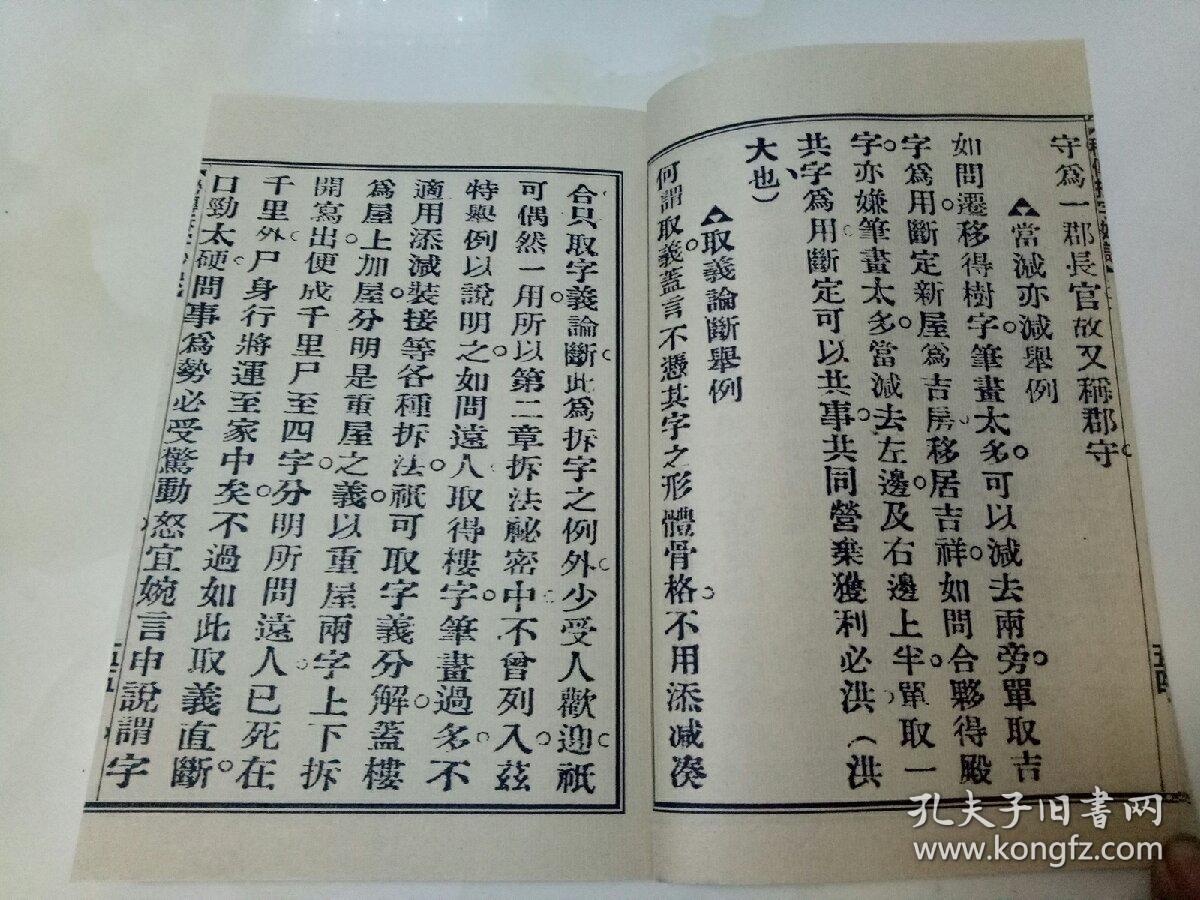 守爲一郡長官故又稱郡守
▲當減亦減舉例
如問遷移得樹字筆畫太多可以減去兩旁單取吉
字爲用斷定新屋爲吉房移居吉祥如問合夥得殿
字亦嫌筆畫太多當減去左邊及右邊上半單取一
共字爲用斷定可以共事共同營業獲利必洪（洪
大也）
▲取義論斷舉例
何謂取義蓋言不憑其字之形體骨格不用添減凑
合只取字義論斷此爲拆字之例外少受人歡迎祇
可偶然一用所以第二章拆法秘密中不曾列入茲
特舉例以說明之如問遠人取得樓字筆畫過多不
適用添減裝接等各種拆法祇可取字義分解蓋樓
爲屋上加屋分明是重屋之義以重屋兩字上下拆
開寫出便成千里尸至四字分明所問遠人已死在
千里外尸身行將運至家中矣不過如此取義直斷
口勁太硬問事爲勢必受驚動怒宜婉言申說謂字
五四
五五
孔夫子旧书网
www.kongfz.com